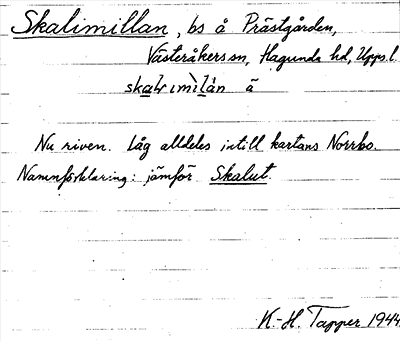 Skalimillan, bs å Prästgården,
Västeråkers sn, Hagunda hd, Upps. l.
Nu riven. Låg alldeles intill kartans Norrbo.
Namnförklaring: jämför Skalut.
K.-H. Tapper 1944